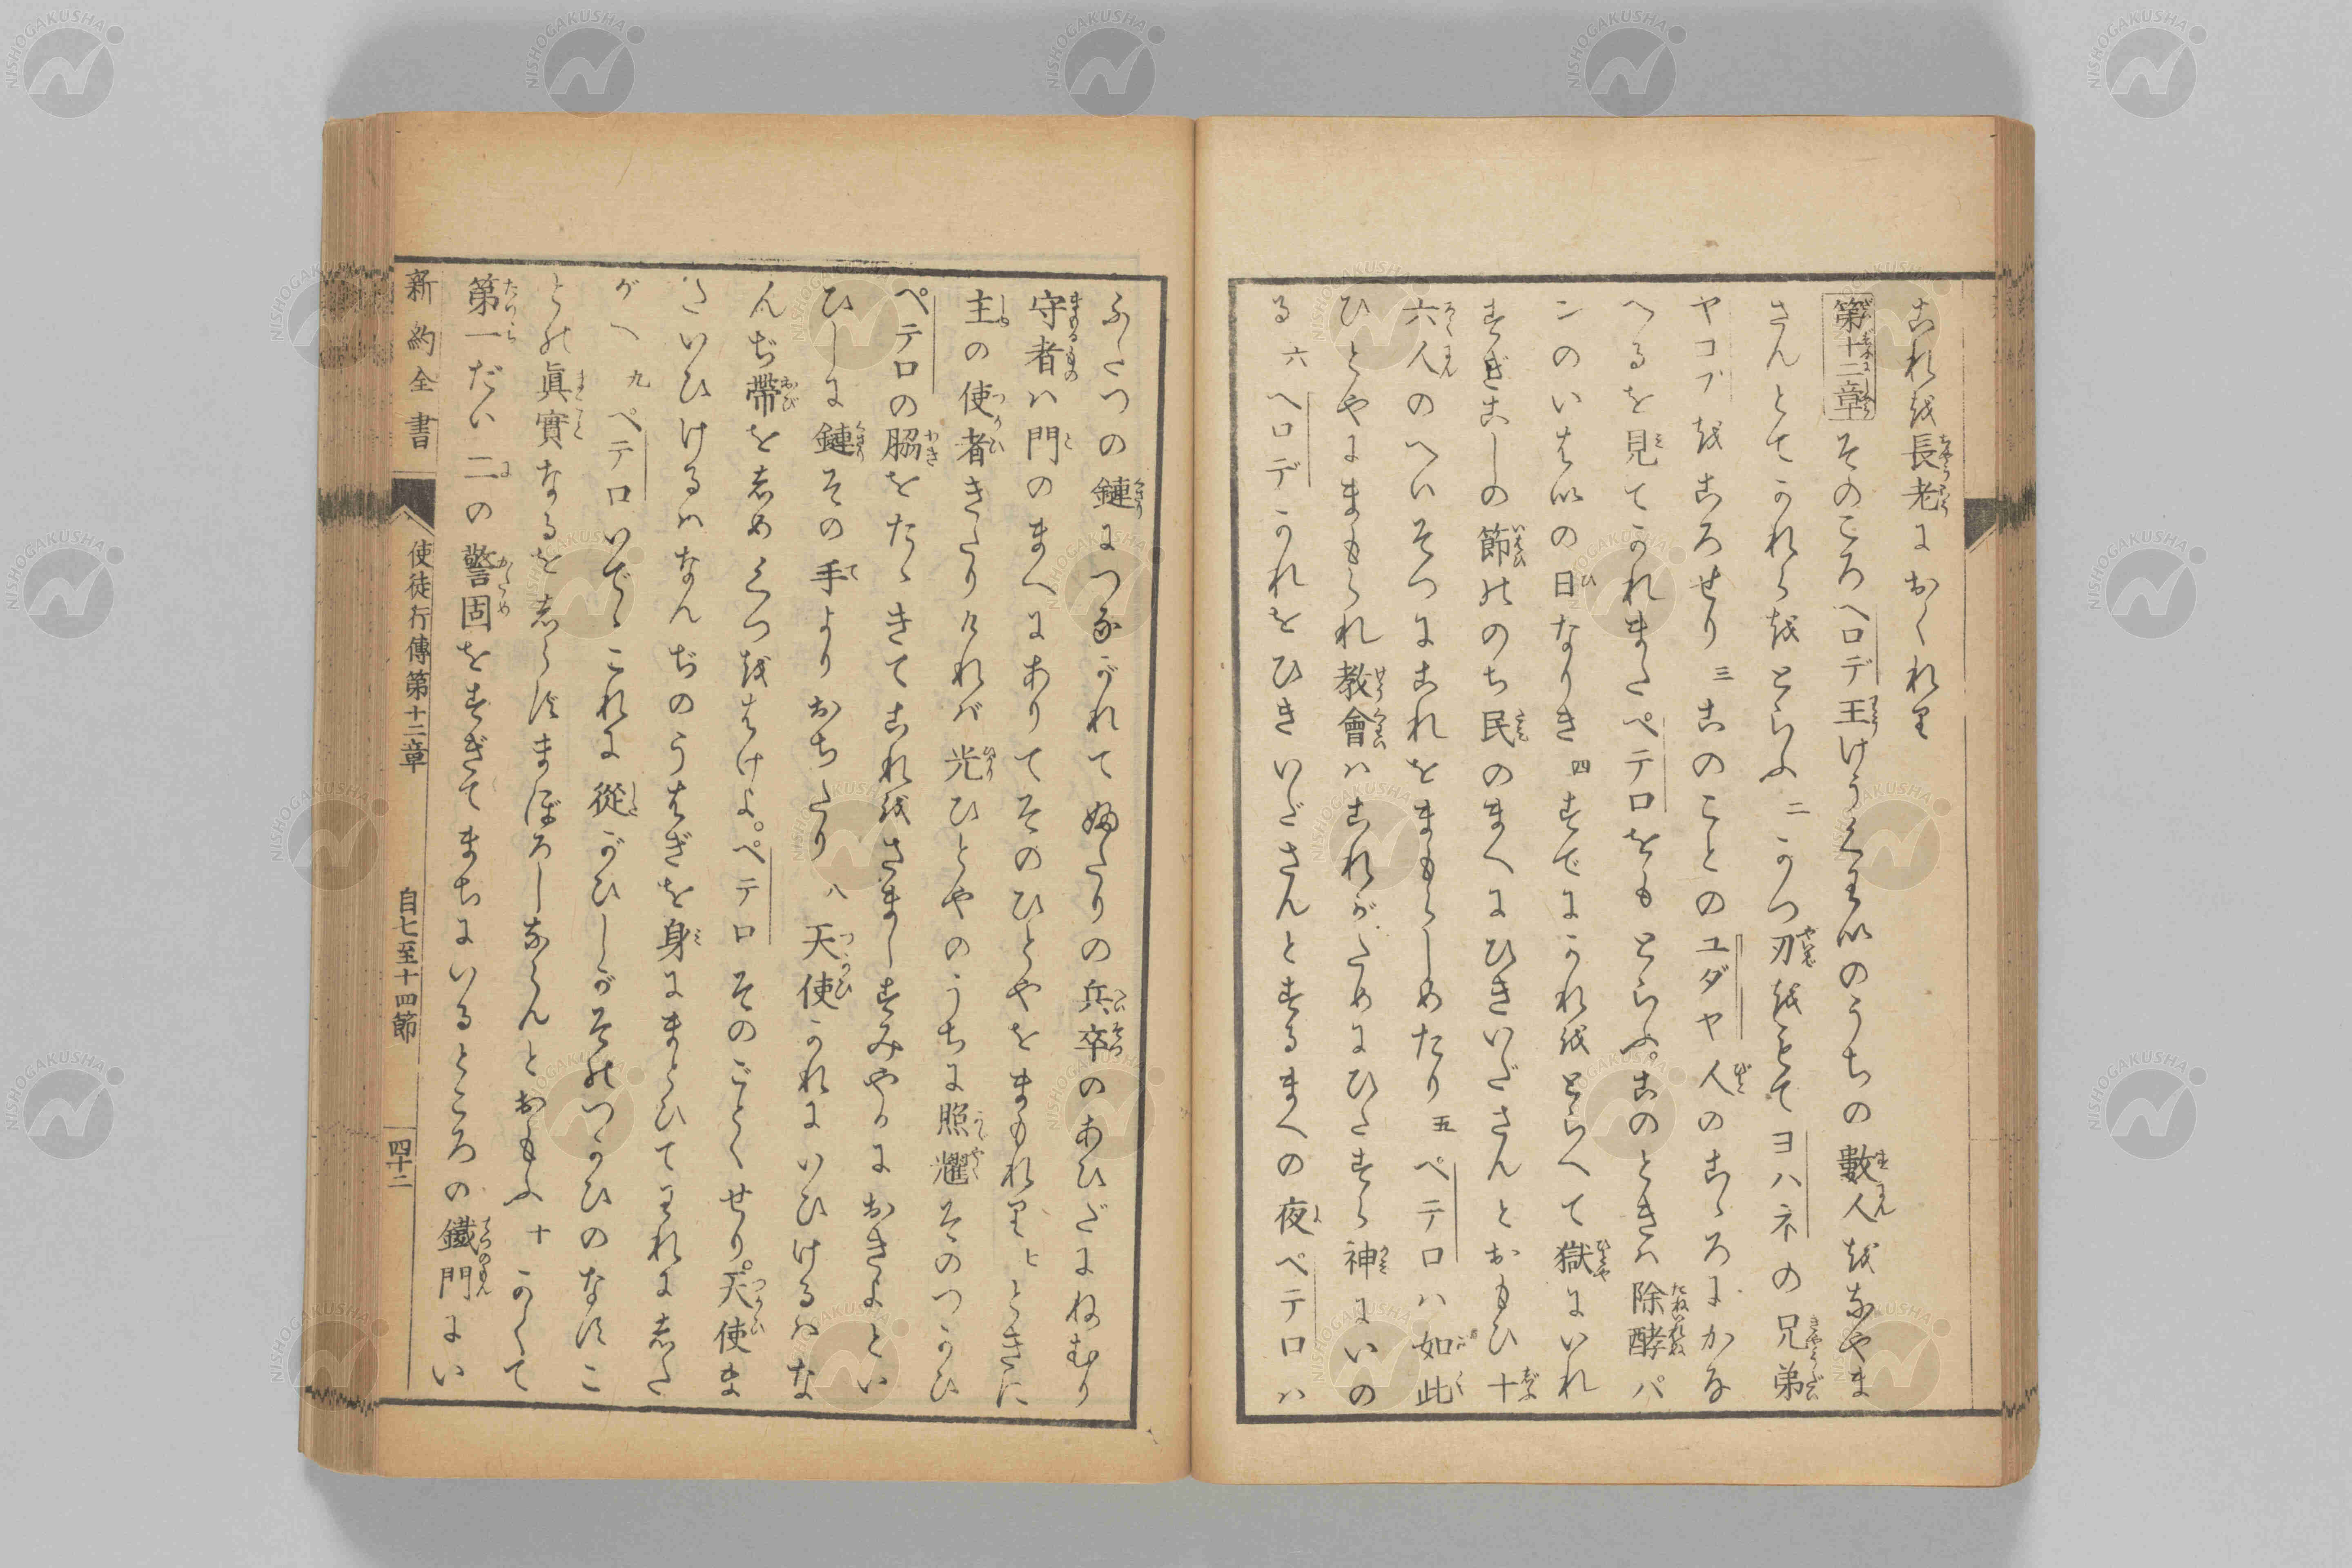 これを長老におくれり
第十二章 そのころヘロデ王けうくわいのうちの數人をなやま
さんとてかれらをとらふ 二 かつ刃をもてヨハネの兄弟
ヤコブをころせり 三 このことのユダヤ人のこゝろにかな
へるを見てかれまたペテロをもとらふ。このときは除酵パ
ンのいはひの日なりき 四 すでにかれをとらへて獄にいれ
すぎこしの節ののち民のまへにひきいださんとおもひ十
六人のへいそつにこれをまもらしめたり 五 ペテロハ如此
ひとやにまもられ教會ハこれがためにひたすら神にいの
る 六 ヘロデかれをひきいださんとするまへの夜ペテロハ
ふたつの鏈につながれてふたりの兵卒のあひだにねむり
守者ハ門のまへにありてそのひとやをまもれり 七 ときに
主の使者きたりければ光ひとやのうちに照耀そのつかひ
ペテロの脇をたゝきてこれをさましすみやかにおきよとい
ひしに鏈その手よりおちたり 八 天使かれにいひけるハな
んぢ帶をしめくつをはけよ。ペテロそのごとくせり。天使ま
たいひけるハなんぢのうはぎを身にまとひてわれにした
がへ 九 ペテロいでゝこれに從がひしがそのつかひのなすこ
との眞實なるをしらずまぼろしならんとおもふ 十 かくて
第一だい二の警固をすぎてまちにいるところの鐵門にい
新約全書 使徒行傳第十二章 自七至十四節 四十二